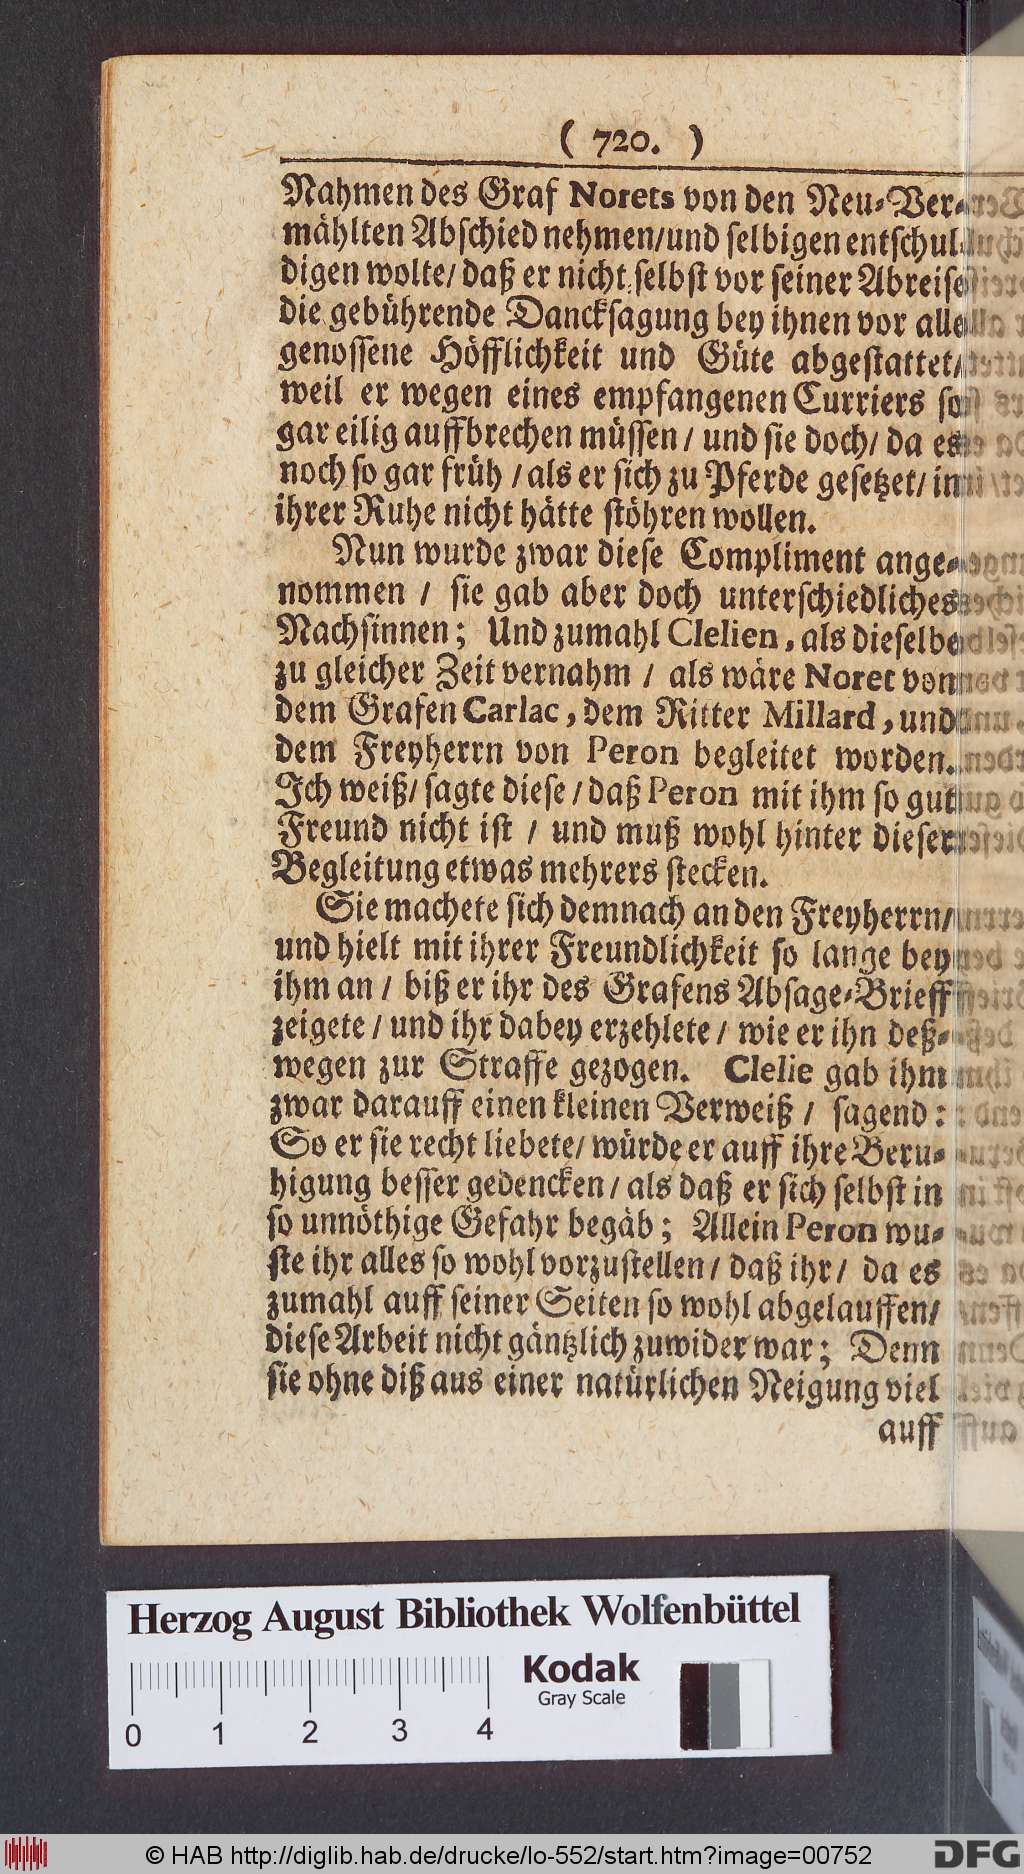 ( 720. )
Nahmen des Graf Norets von den Neu-Ver-
mählten Abschied nehmen/und selbigen entschul-
digen wolte/ daß er nicht selbst vor seiner Abreise
die gebührende Dancksagung bey ihnen vor alle
genossene Höfflichkeit und Güte abgestattet/
weil er wegen eines empfangenen Curriers so
gar eilig auffbrechen müssen / und sie doch/ da es
noch so gar früh / als er sich zu Pferde gesetzet/ in
ihrer Ruhe nicht hätte stöhren wollen.
Nun wurde zwar diese Compliment ange-
nommen / sie gab aber doch unterschiedliches
Nachsinnen; Und zumahl Clelien, als dieselbe
zu gleicher Zeit vernahm / als wäre Noret von
dem Grafen Carlac, dem Ritter Millard, und
dem Freyherrn von Peron begleitet worden.
Ich weiß/ sagte diese / daß Peron mit ihm so gut
Freund nicht ist / und muß wohl hinter dieser
Begleitung etwas mehrers stecken.
Sie machete sich demnach an den Freyherrn/
und hielt mit ihrer Freundlichkeit so lange bey
ihm an / biß er ihr des Grafens Absage-Brieff
zeigete / und ihr dabey erzehlete / wie er ihn deß-
wegen zur Straffe gezogen. Clelie gab ihm
zwar darauff einen kleinen Verweiß / sagend:
So er sie recht liebete/ würde er auff ihre Beru-
higung besser gedencken / als daß er sich selbst in
so unnöthige Gefahr begäb; Allein Peron wu-
ste ihr alles so wohl vorzustellen / daß ihr / da es
zumahl auff seiner Seiten so wohl abgelauffen/
diese Arbeit nicht gäntzlich zuwider war; Denn
sie ohne diß aus einer natürlichen Neigung viel
auff
Herzog August Bibliothek Wolfenbüttel
Kodak
Gray Scale
0 1 2 3 4
© HAB http://diglib.hab.de/drucke/lo-552/start.htm?image=00752
DFG